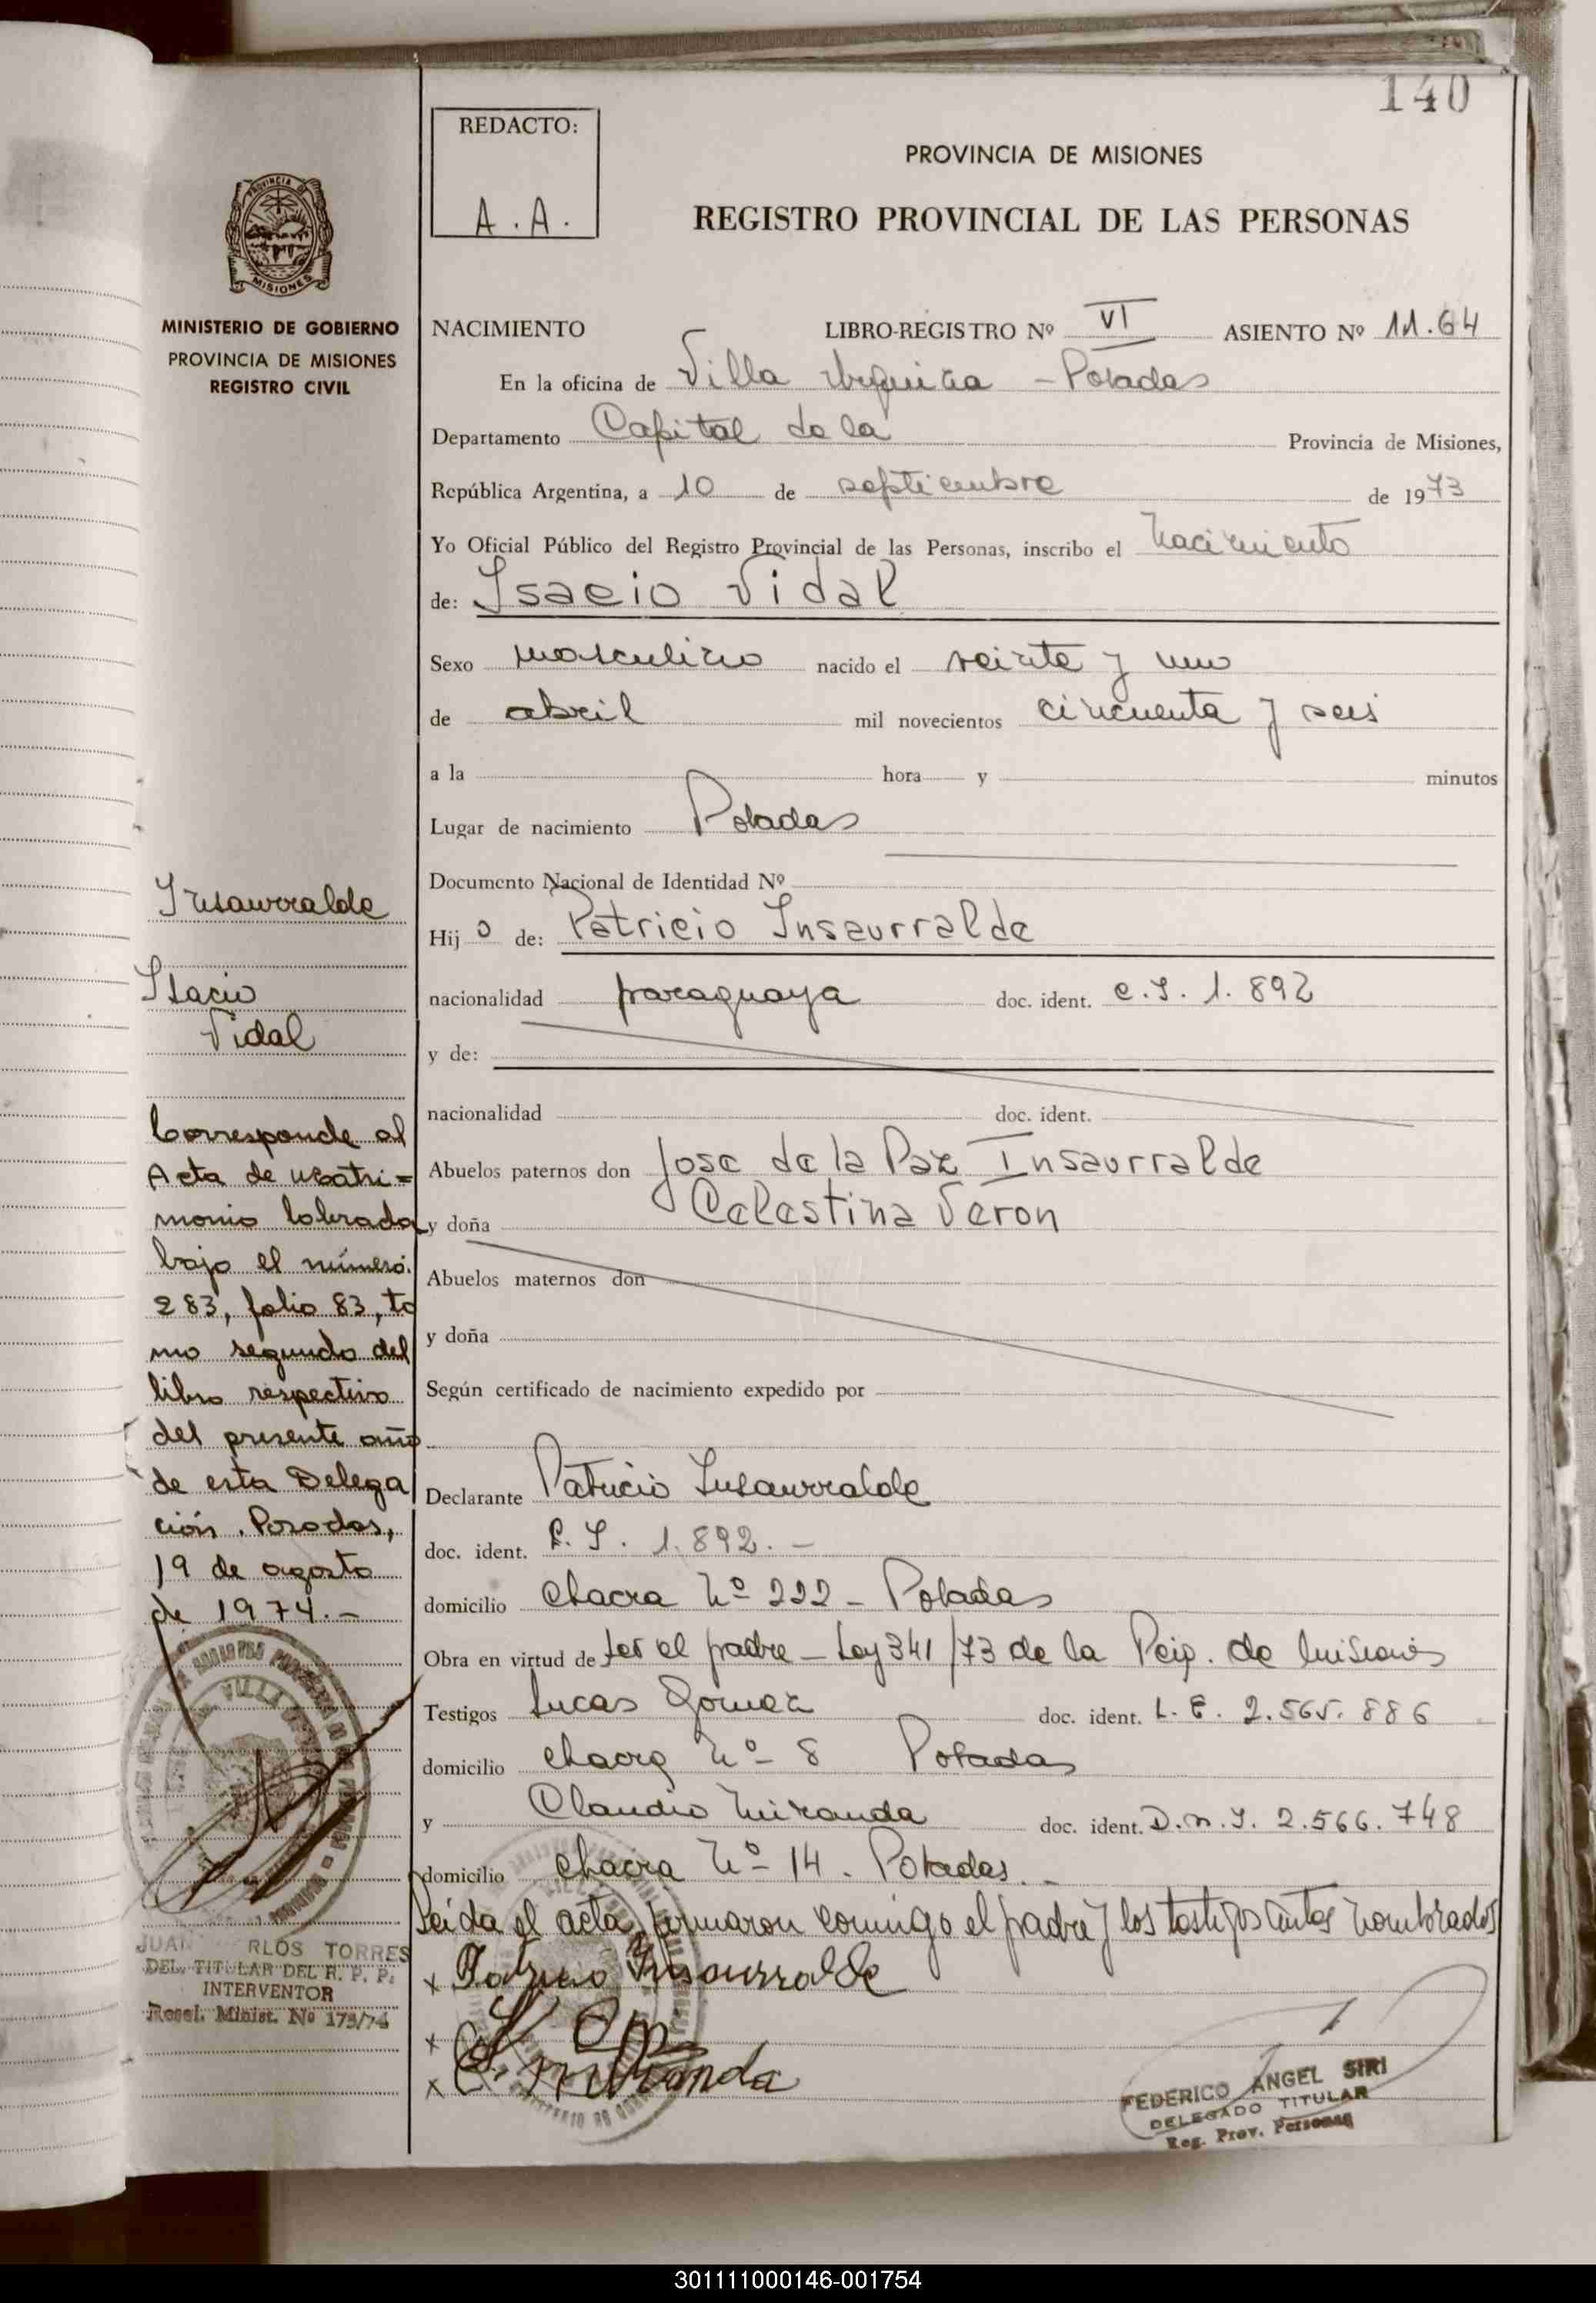 140
REDACTO:
A.A.
PROVINCIA DE MISIONES
REGISTRO PROVINCIAL DE LAS PERSONAS
MISIONES
MINISTERIO DE GOBIERNO
PROVINCIA DE MISIONES
REGISTRO CIVIL
NACIMIENTO LIBRO-REGISTRO Nº VI ASIENTO Nº 11.64
En la oficina de Villa Urquiza - Posadas
Departamento Capital de la Provincia de Misiones,
República Argentina, a 10 de septiembre de 1973
Yo Oficial Público del Registro Provincial de las Personas, inscribo el nacimiento
de: Isacio Vidal
Sexo masculino nacido el veinte y uno
de abril mil novecientos cincuenta y seis
a la hora y minutos
Lugar de nacimiento Posadas
Documento Nacional de Identidad Nº
Hijo de: Patricio Insaurralde
nacionalidad paraguaya doc. ident. C.I. 1.892
y de:
nacionalidad doc. ident.
Abuelos paternos don Jose de la Paz Insaurralde
y doña Celestina Veron
Abuelos maternos don
y doña
Según certificado de nacimiento expedido por
Declarante Patricio Insaurralde
doc. ident. C.I. 1.892.-
domicilio chacra Nº 222 - Posadas
Obra en virtud de ser el padre - Ley 341/73 de la Pcip. de Misiones
Testigos Lucas Gomez doc. ident. L.E. 2.565.886
domicilio chacra Nº 8 Posadas
y Claudio Miranda doc. ident. D.N.I. 2.566.748
domicilio chacra Nº 14. Posadas.-
Leida el acta, firmaron conmigo el padre y los testigos antes nombrados
x Patricio Insaurralde
x
x C. Miranda
FEDERICO ANGEL SIRI
DELEGADO TITULAR
Reg. Prov. Personas
Insaurralde
Isacio
Vidal
Corresponde al
Acta de Matri=
monio labrada
bajo el número
283, folio 83, to
mo segundo del
libro respectivo
del presente año
de esta Delega
ción. Posadas,
19 de agosto
de 1974.-
JUAN RLOS TORRES
DEL. TITULAR DEL R. P. P.
INTERVENTOR
Resol. Minist. Nº 173/74
301111000146-001754